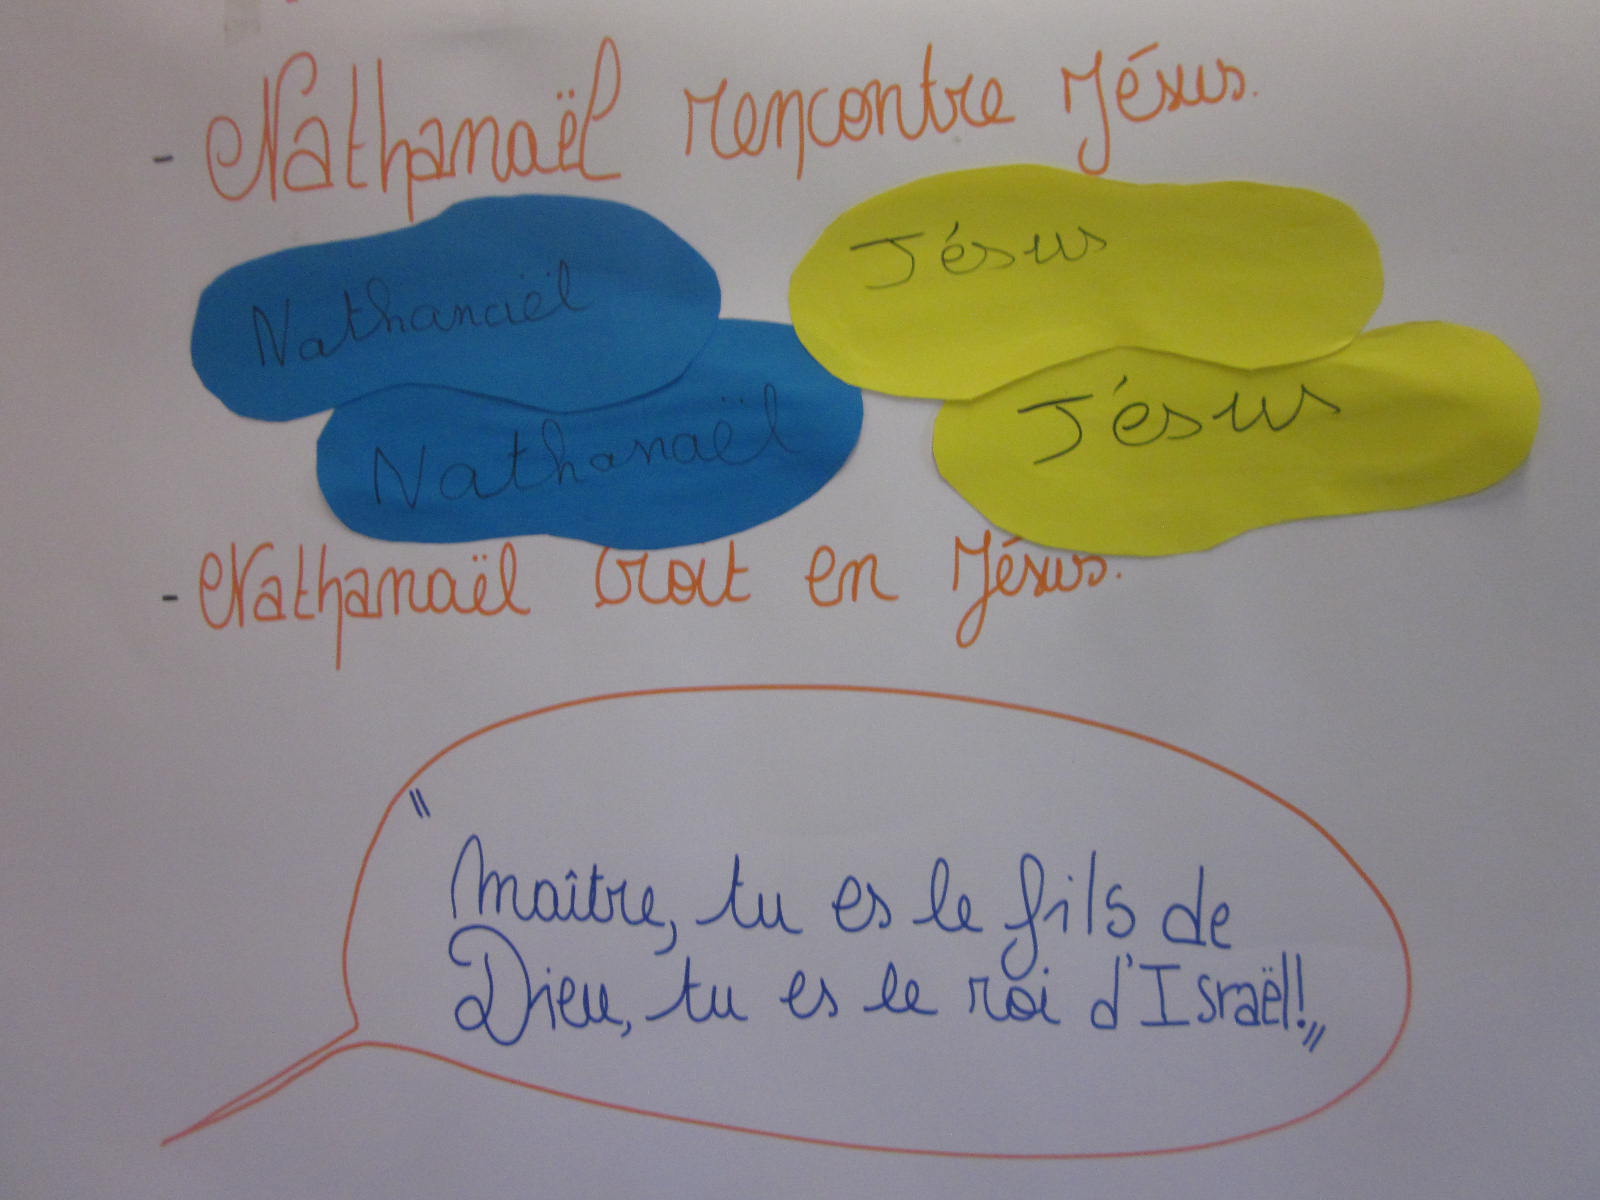 - Nathanaël rencontre Jésus.
Nathanaël
Jésus
Nathanaël
Jésus
- Nathanaël croit en Jésus.
"
Maître, tu es le fils de
Dieu, tu es le roi d'Israël!"